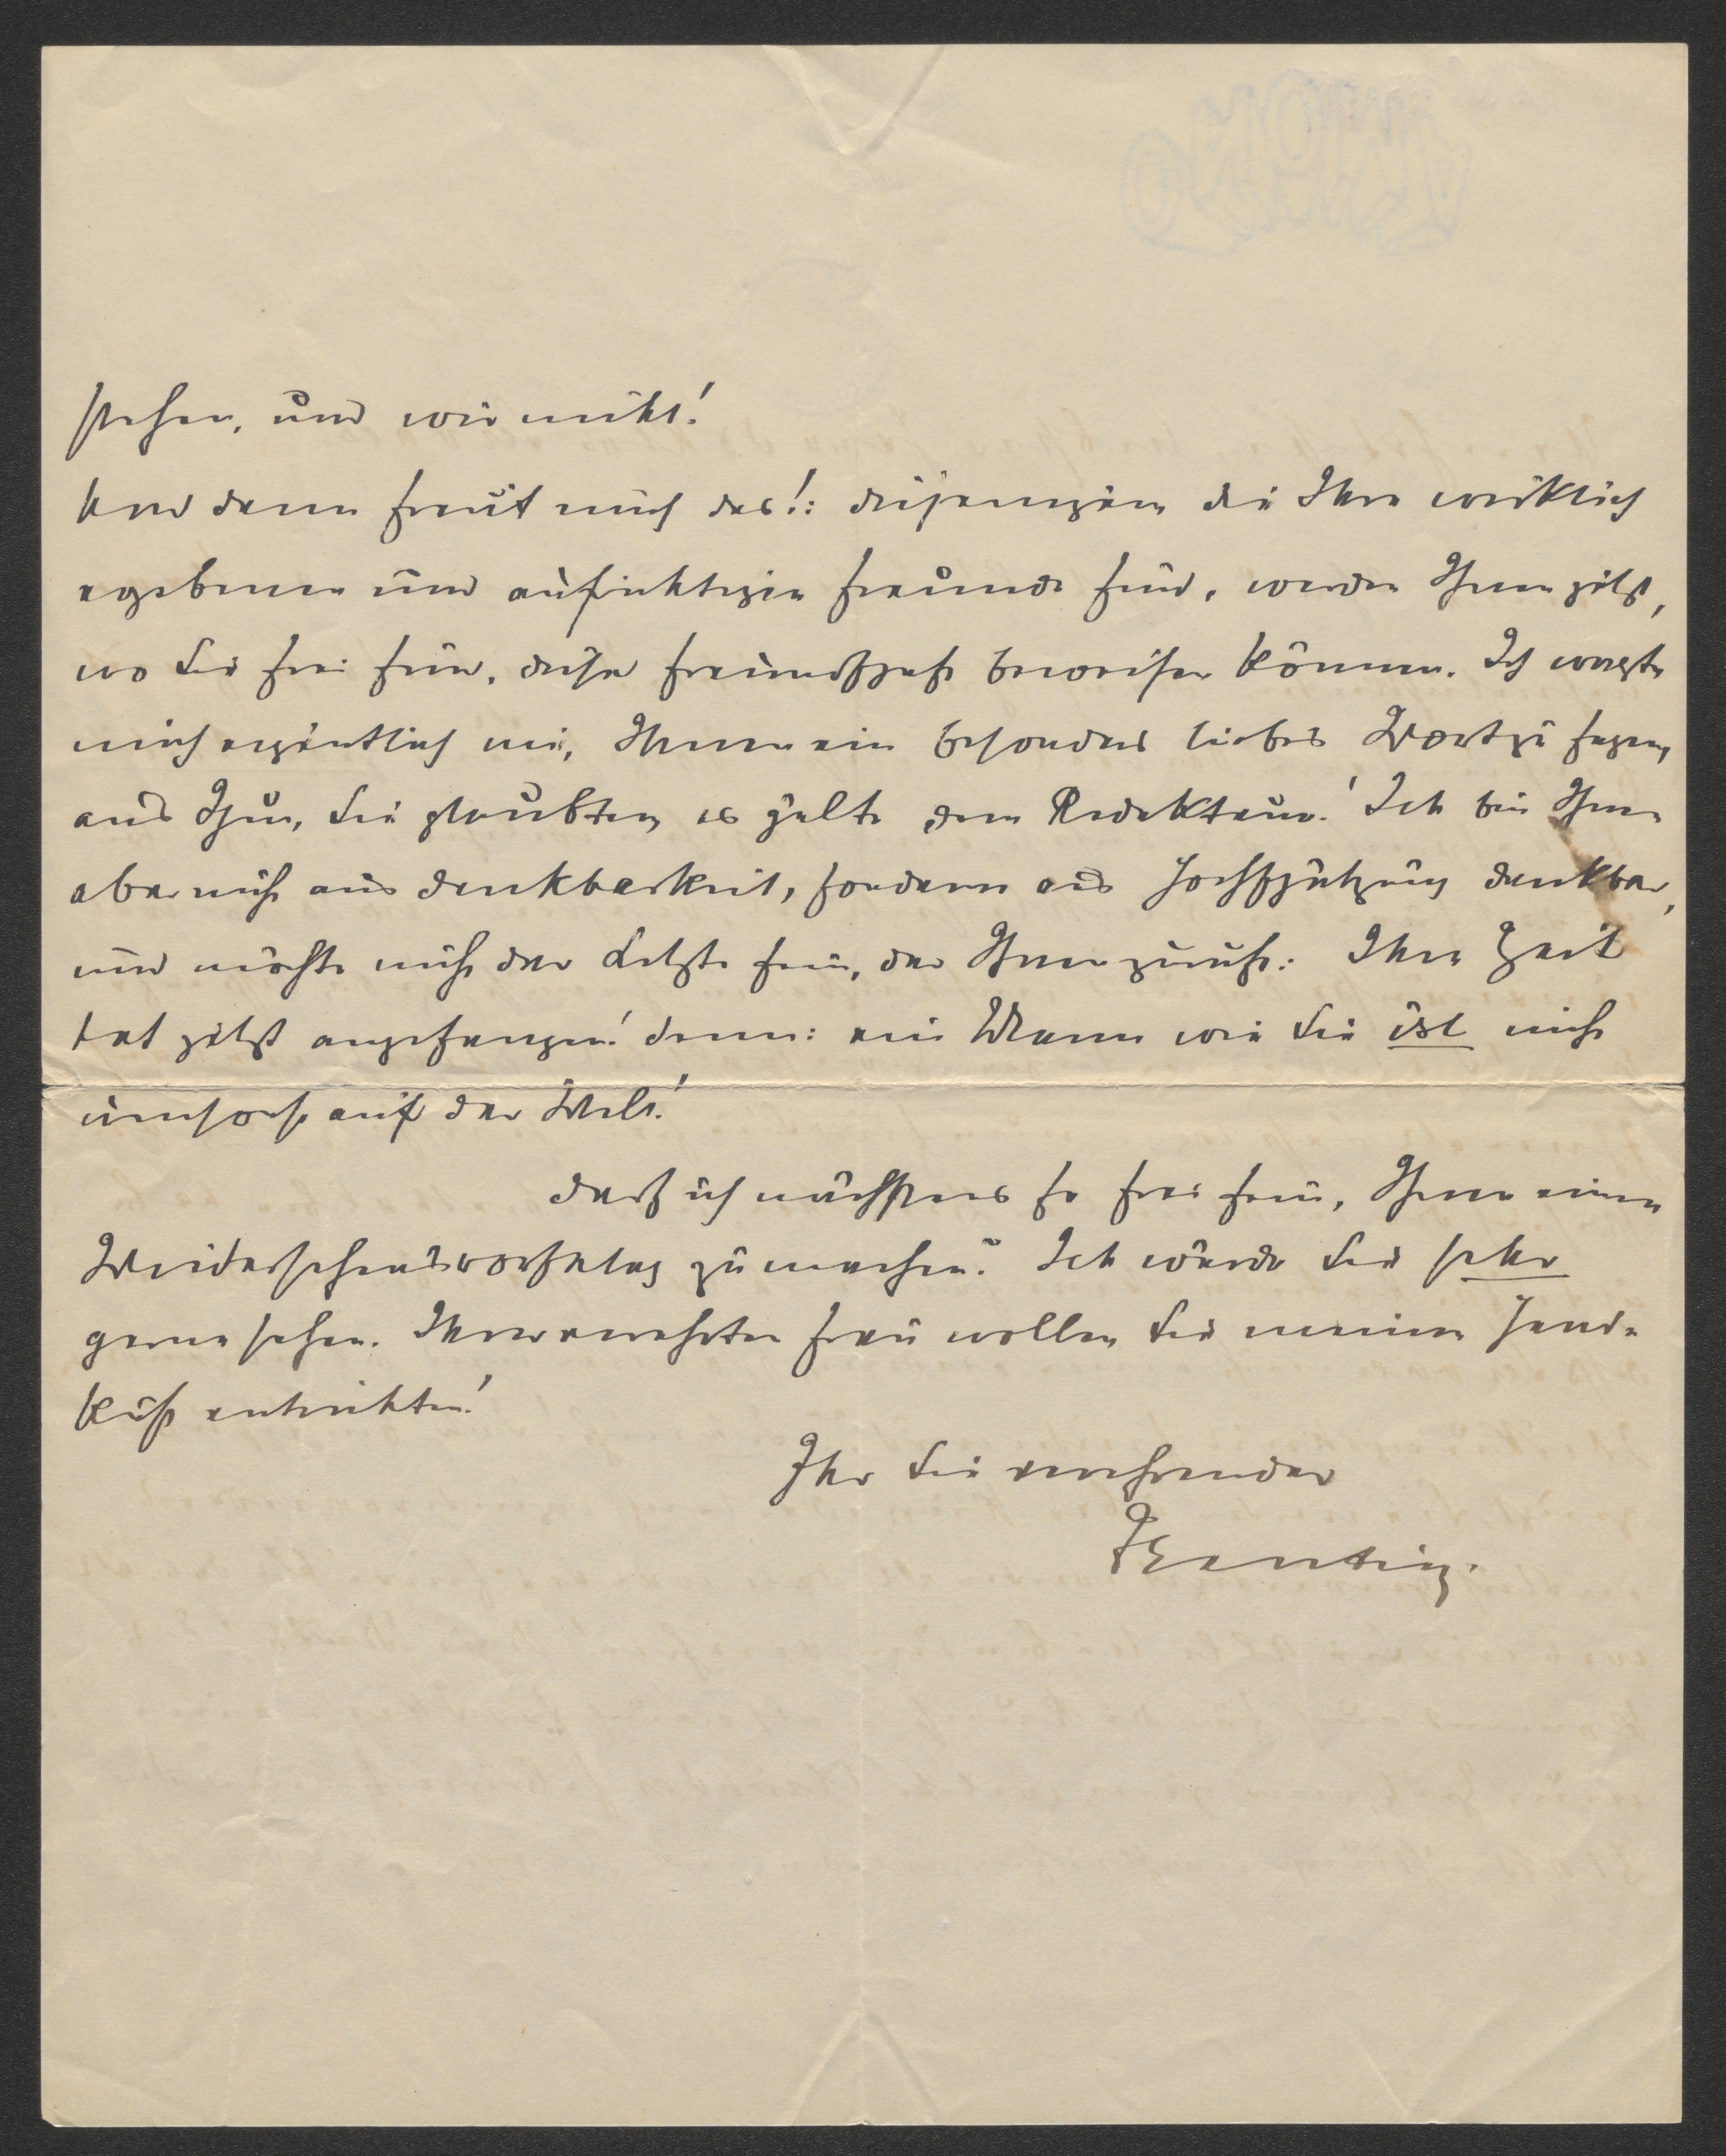 stehen, und wie nicht!
Und dann freut mich das!: diejenigen die Ihre wirklich
ergebenen und aufrichtigen Freunde sind, werden Ihnen jetzt,
wo Sie frei sind, diese Freundschaft beweisen können. Ich wagte
mich eigentlich nie, Ihnen ein besonders liebes Wort zu sagen,
aus Scheu, Sie glaubten es gälte dem Redakteur! Ich bin Ihnen
aber nicht aus Dankbarkeit, sondern aus Hochschätzung dankbar,
und möchte nicht der Letzte sein, der Ihnen zuruft: Ihre Zeit
hat jetzt angefangen! denn: ein Mann wie Sie ist nicht
umsonst auf der Welt!
Darf ich nächstens so frei sein, Ihnen einen
Wiedersehensvorschlag zu machen? Ich würde Sie sehr
gerne sehen. Ihrer verehrten Frau wollen Sie meinen Hand-
kuß entrichten!
Ihr Sie verehrender